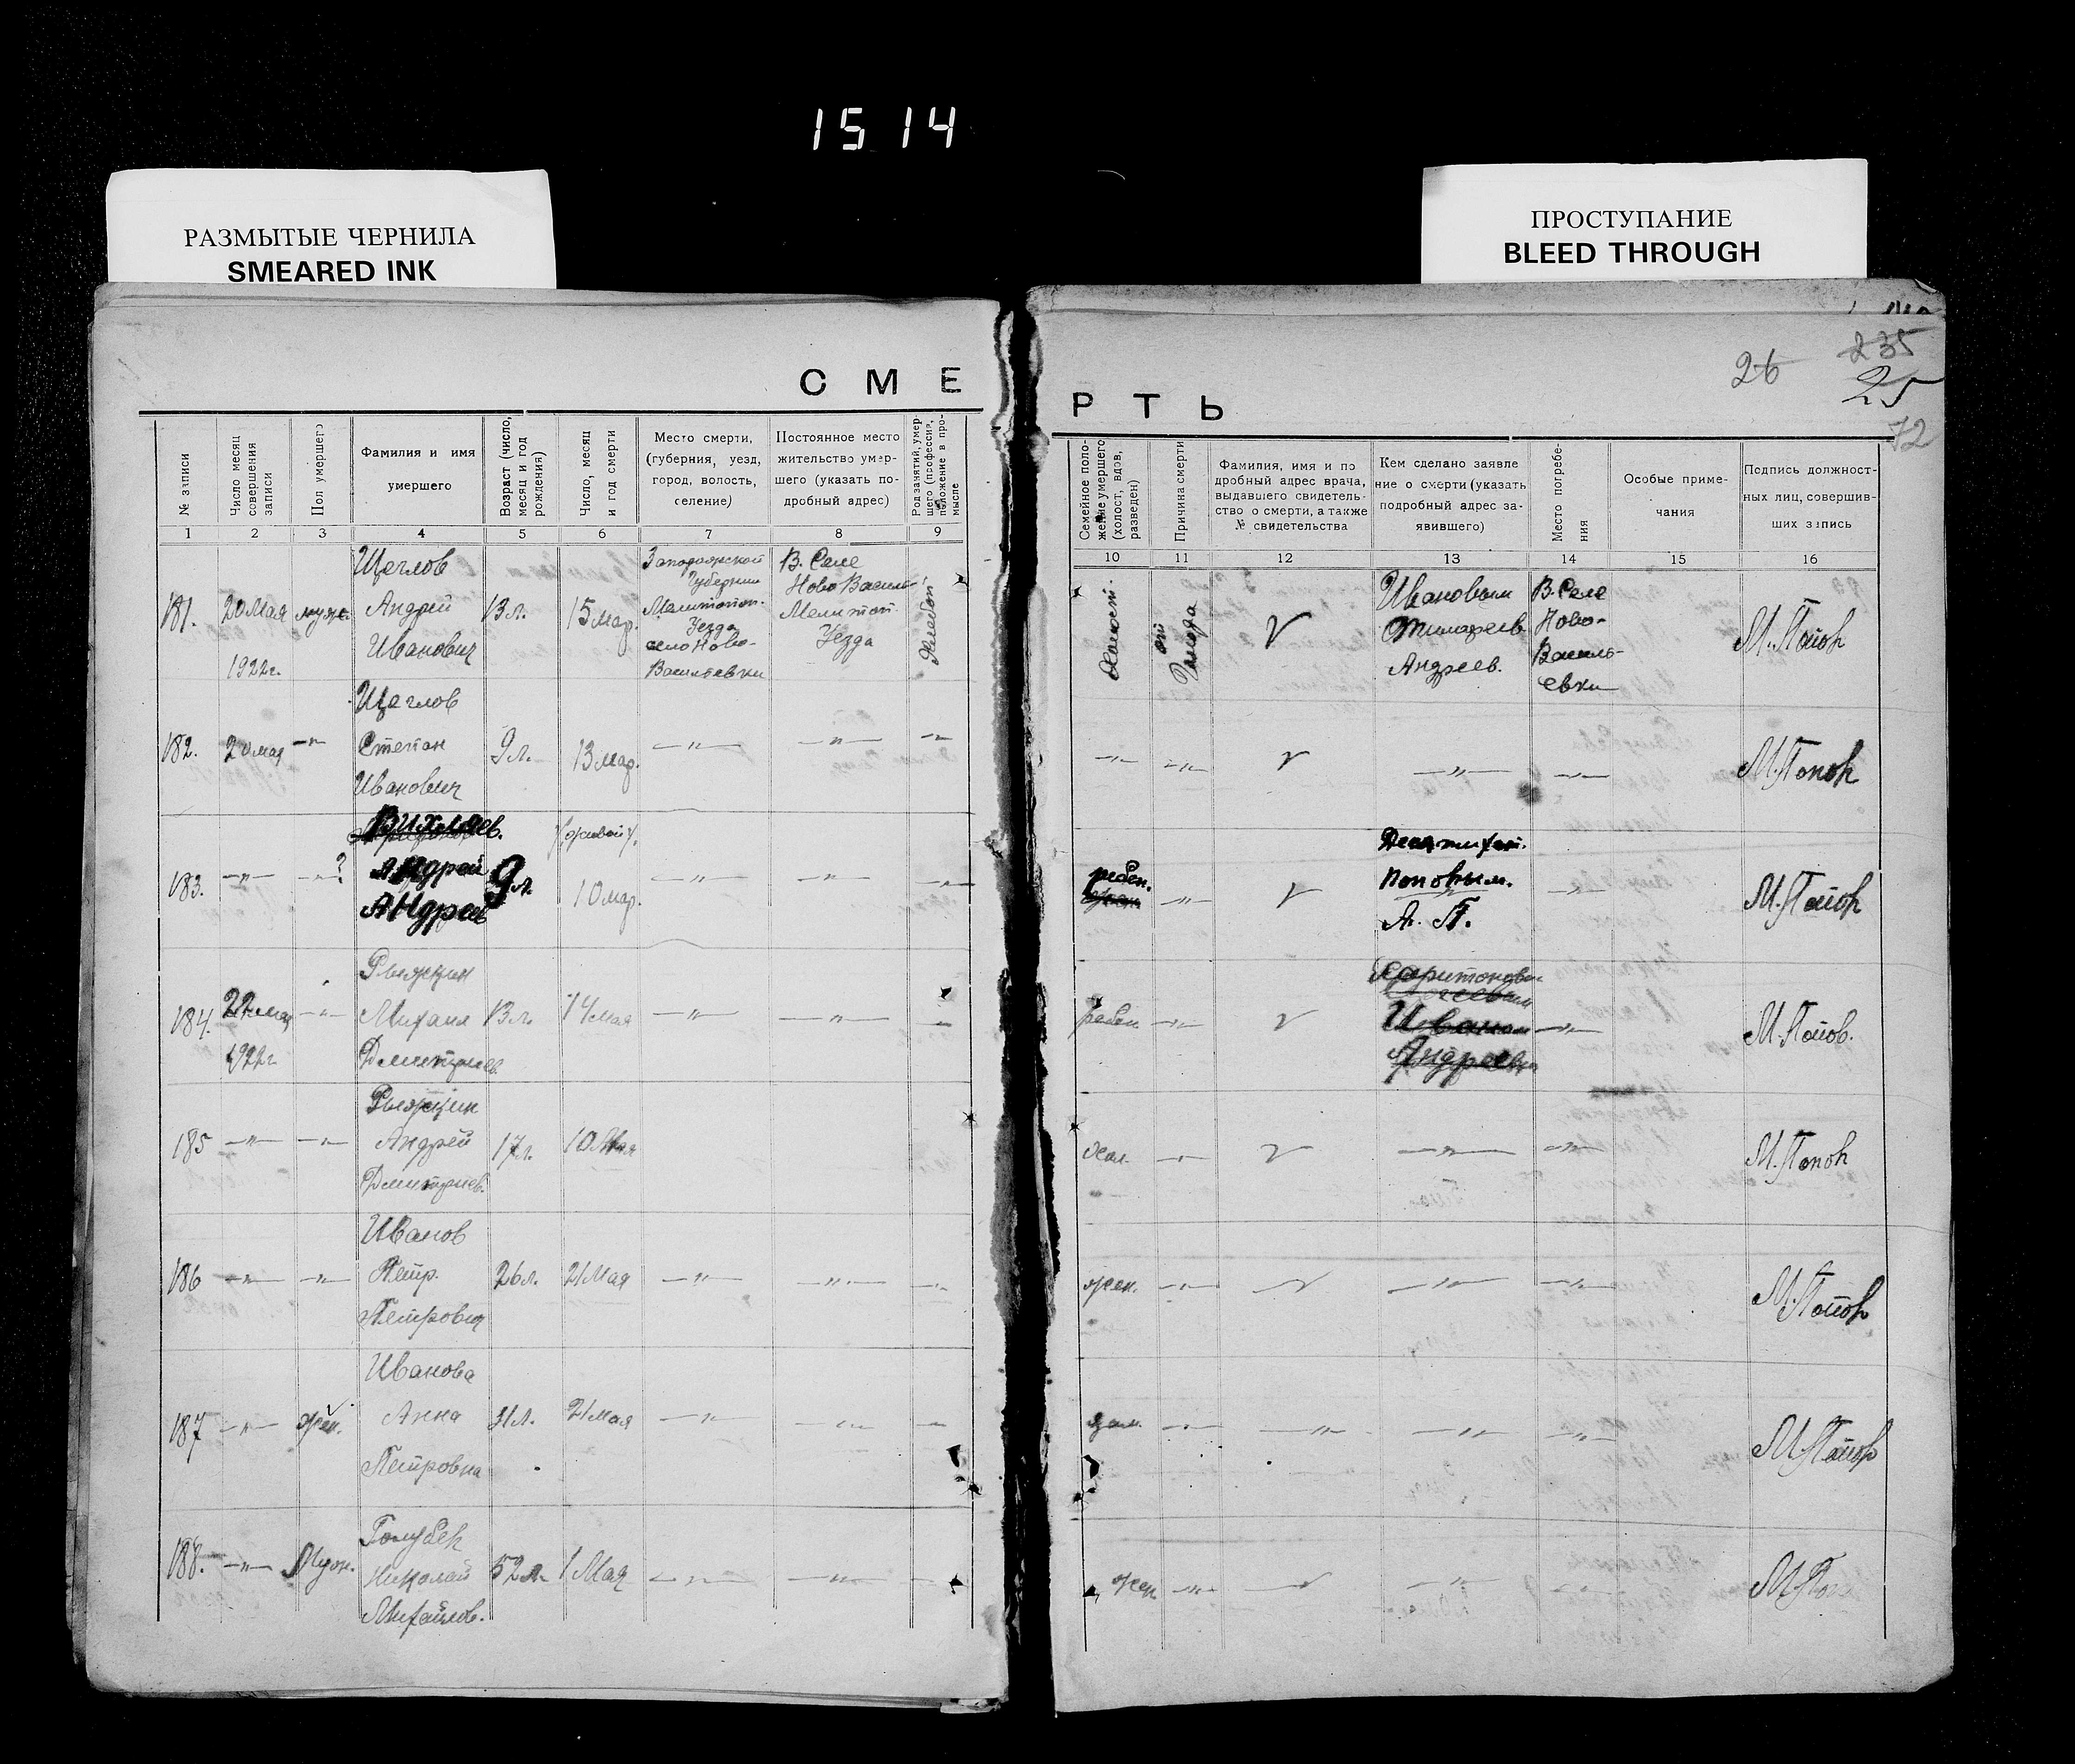 1514
РАЗМЫТЫЕ ЧЕРНИЛА
SMEARED INK
ПРОСТУПАНИЕ
BLEED THROUGH
235
26
25
72
СМЕ
РТЬ
№ записи
Число месяц совершения записи
Пол умершего
Фамилия и имя умершего
Возраст (число, месяц и год рождения)
Число, месяц и год смерти
Место смерти, (губерния, уезд, город, волость, селение)
Постоянное место жительство умершего (указать подробный адрес)
Род занятий, умершего (профессия, положение в промысле
Семейное положение умершего (холост, вдов, разведен)
Причина смерти
Фамилия, имя и подробный адрес врача, выдавшего свидетельство о смерти, а также № свидетельства
Кем сделано заявление о смерти (указать подробный адрес заявившего)
Место погребения
Особые примечания
Подпись должностных лиц, совершивших запись
1 2 3 4 5 6 7 8 9
10 11 12 13 14 15 16
181. 20 Мая 1922г. муж. Щеглов Андрей Иванович 13л. 15 мар. Запорожской Губернии Мелитопол. Уезда село Ново-Васильевки В. Селе Ново Василь Мелитоп. Уезда Хлебоп
Холост. от Голода V Ивановым Андреев. В. Селе Ново-Василь-евки М. Попов
182. 20 мая —"— Щеглов Степан Иванович 9 л. 13 мар. —"— —"— —"—
—"— —"— V —"— —"— М. Попов
183. —"— —"—? Вихляев. Андрей Андрей 9 л. 10 мар. —"— —"— —"—
ребен. —"— V Поповым. А. П. —"— М. Попов
184. 22 мая 1922г —"— Рыжкин Михаил Дмитриев. 13 л. 14 мая —"— —"— —
ребен. —"— V Харитоновым Иваном Андреевым —"— М. Попов.
185 —"— —"— Рыжкин Андрей Дмитриев. 17л. 10 Мая
хол. —"— V —"— —"— М. Попов
186 —"— —"— Иванов Петр. Петрович 26л. 21 Мая —"— —"— —"—
жен. —"— V —"— —"— М. Попов
187 —"— жен. Иванова Анна Петровна 31л. 21 мая —"— —"— —"—
зам. —"— —"— —"— —"— М. Попов
188. —"— Муж. Голубев Николай Михайлов. 52 л. 1 Мая —"— —"— —
жен —"— V —"— —"— М. Попо